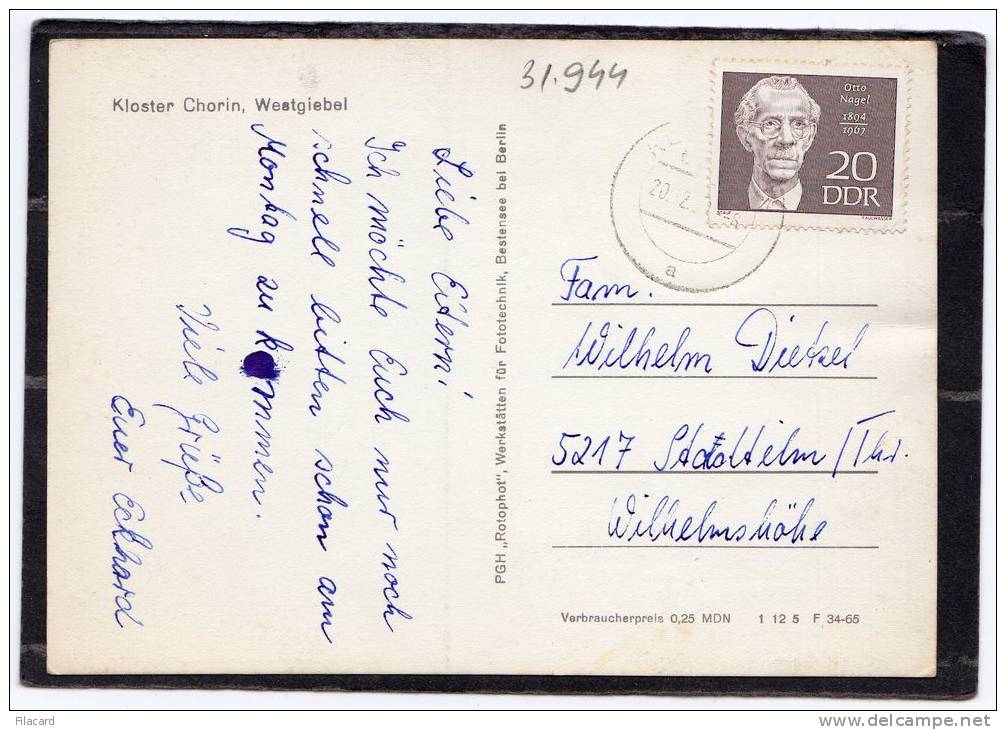 31.944
Kloster Chorin, Westgiebel
Liebe Eltern!
Ich möchte Euch nur noch
schnell bitten schon am
Montag zu kommen.
Viele Grüße
Euer Eckhard
PGH „Rotophot", Werkstätten für Fototechnik, Bestensee bei Berlin
Otto
Nagel
1894
1967
20
DDR
20. 2.
a
Fam.
Wilhelm Dietzel
5217 Stadtilm/Thür.
Wilhelmshöhe
Verbraucherpreis 0,25 MDN 1 12 5 F 34-65
Filacard
www.delcampe.net